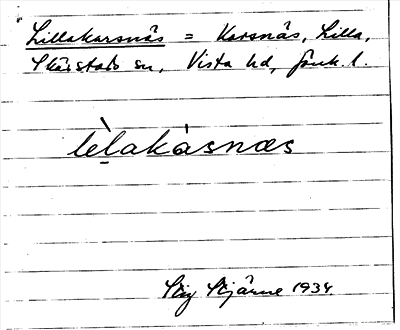 Lillakarsnäs = Karsnäs, Lilla,
Skärstads sn, Vista hd, Jönk. l.
lè̤lakàsnæs
Stig Stjärne 1934